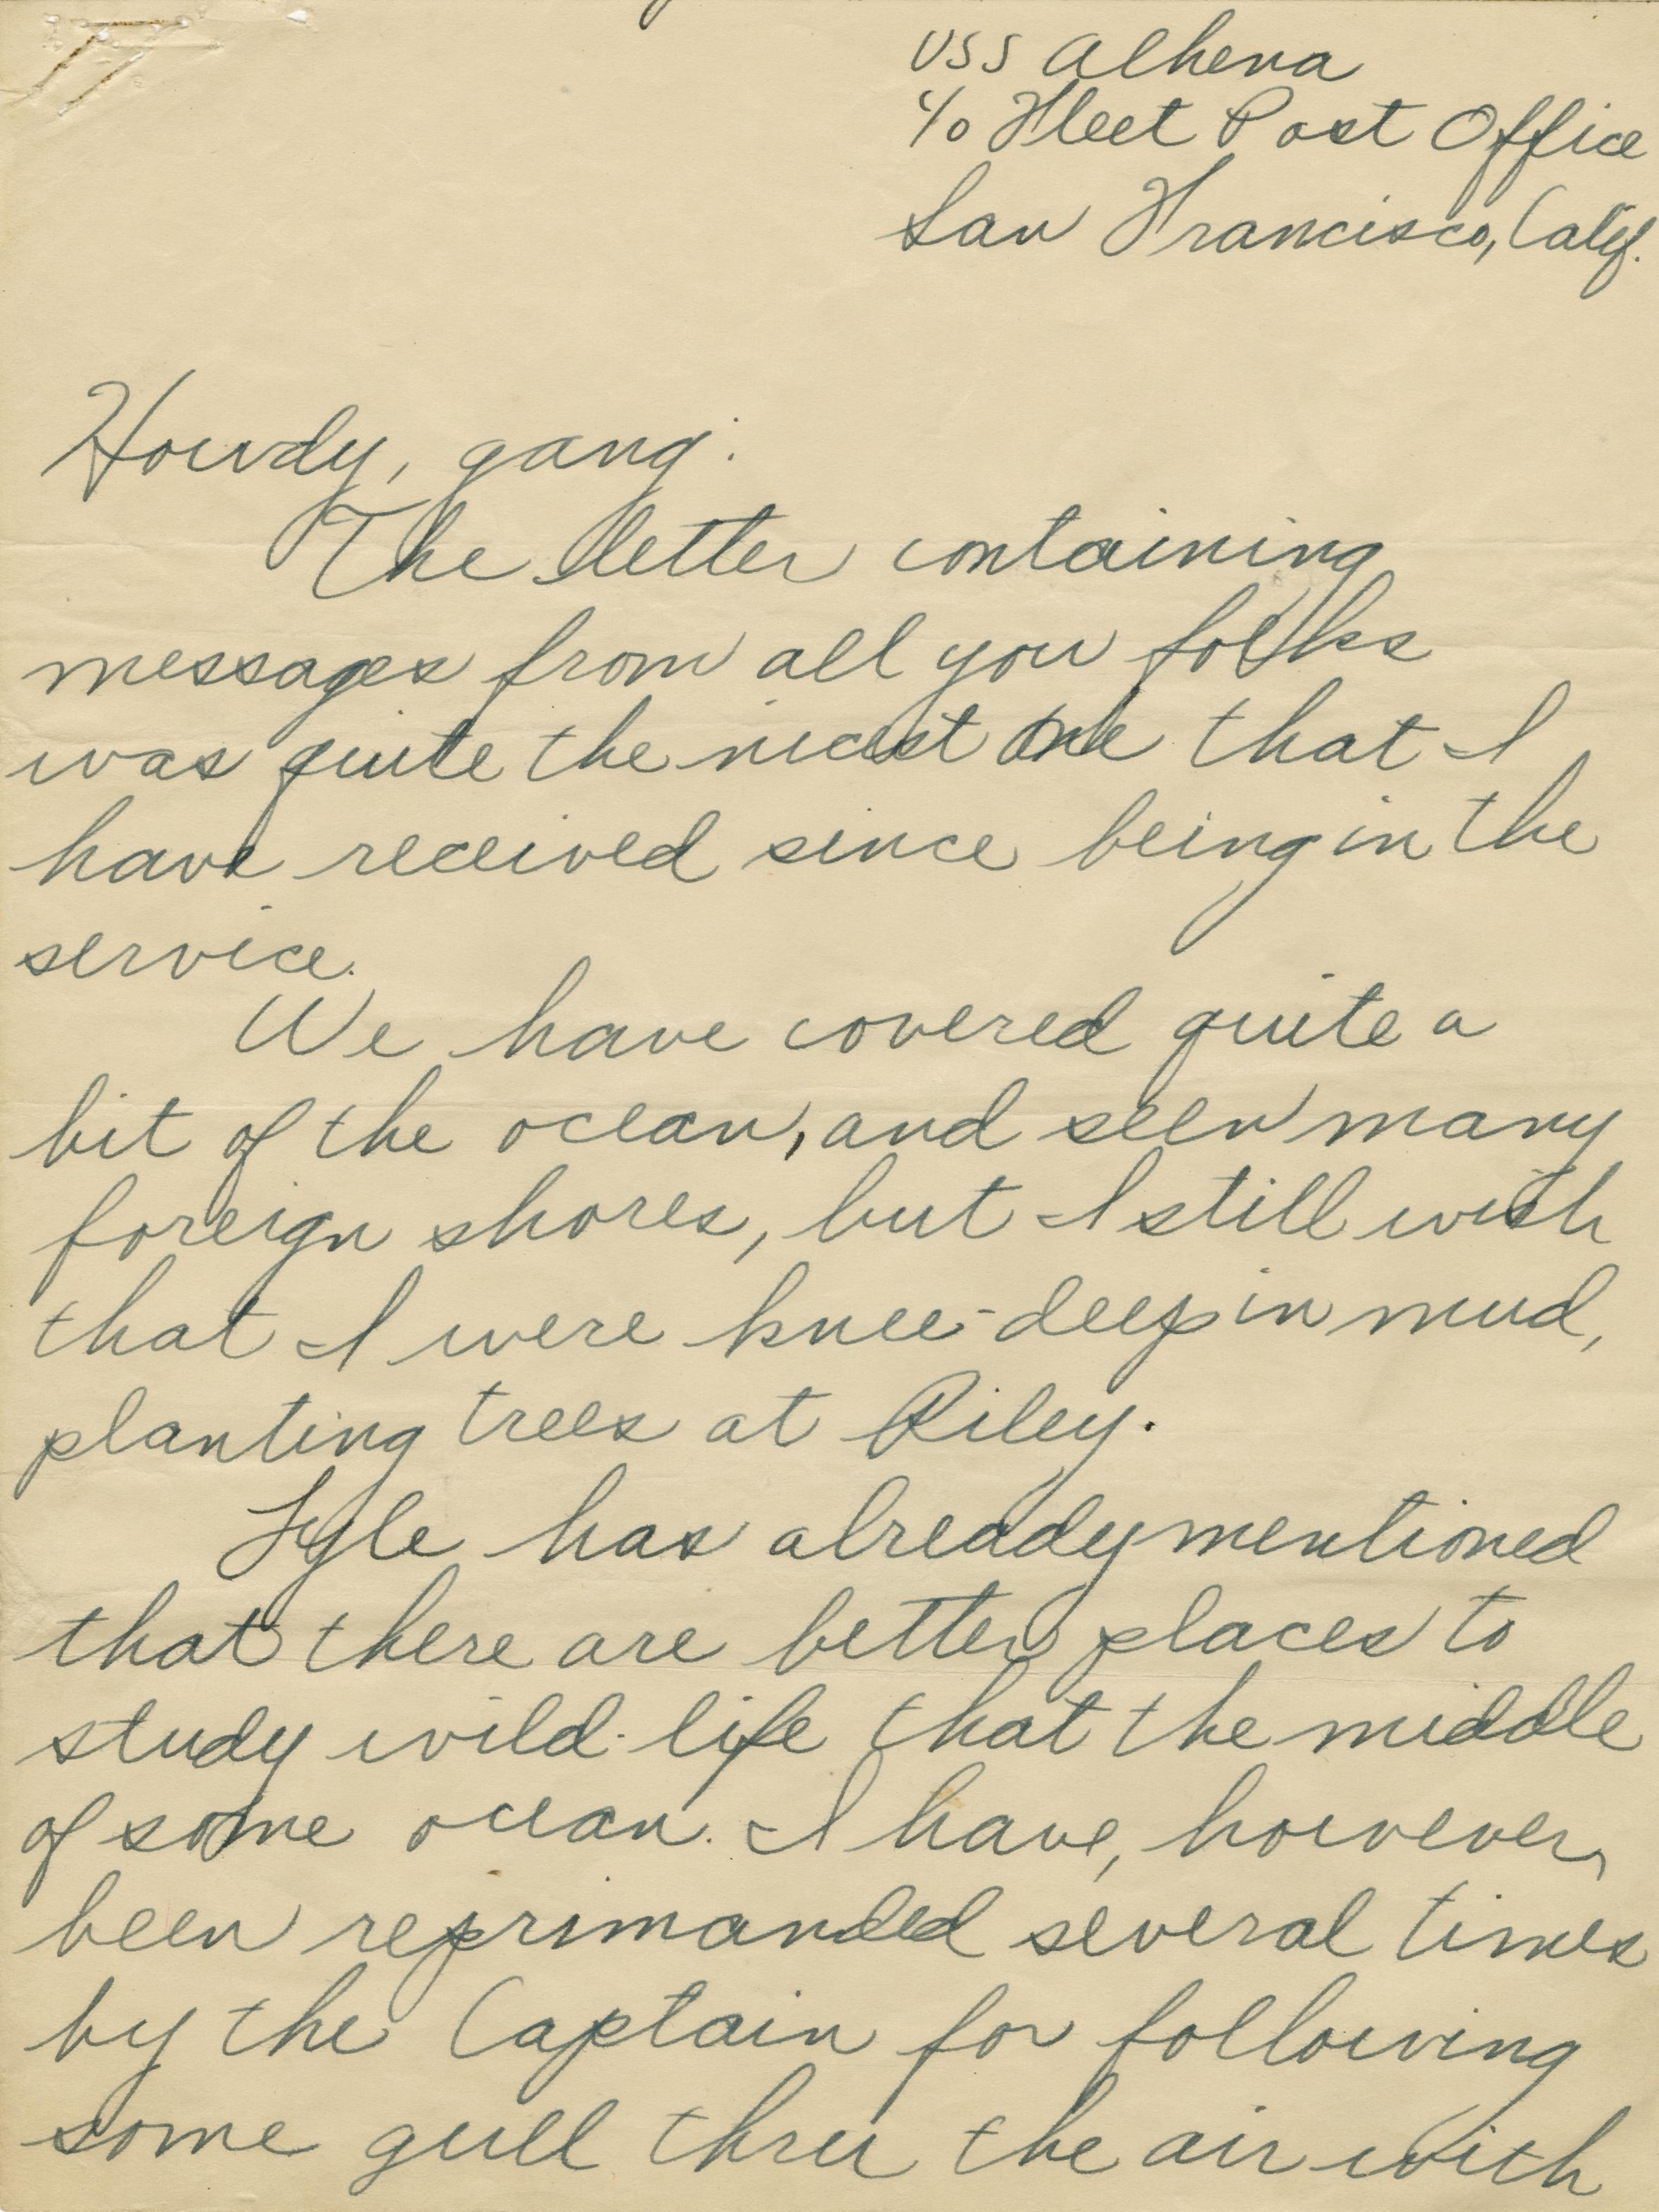 USS Alhena
c/o Fleet Post Office
San Francisco, Calif.
Howdy, gang:
The letter containing
messages from all you folks
was quite the nicest one that I
have received since being in the
service.
We have covered quite a
bit of the ocean, and seen many
foreign shores, but I still wish
that I were knee-deep in mud,
planting trees at Riley.
Lyle has already mentioned
that there are better places to
study wild-life that the middle
of some ocean. I have, however,
been reprimanded several times
by the Captain for following
some gull thru the air with